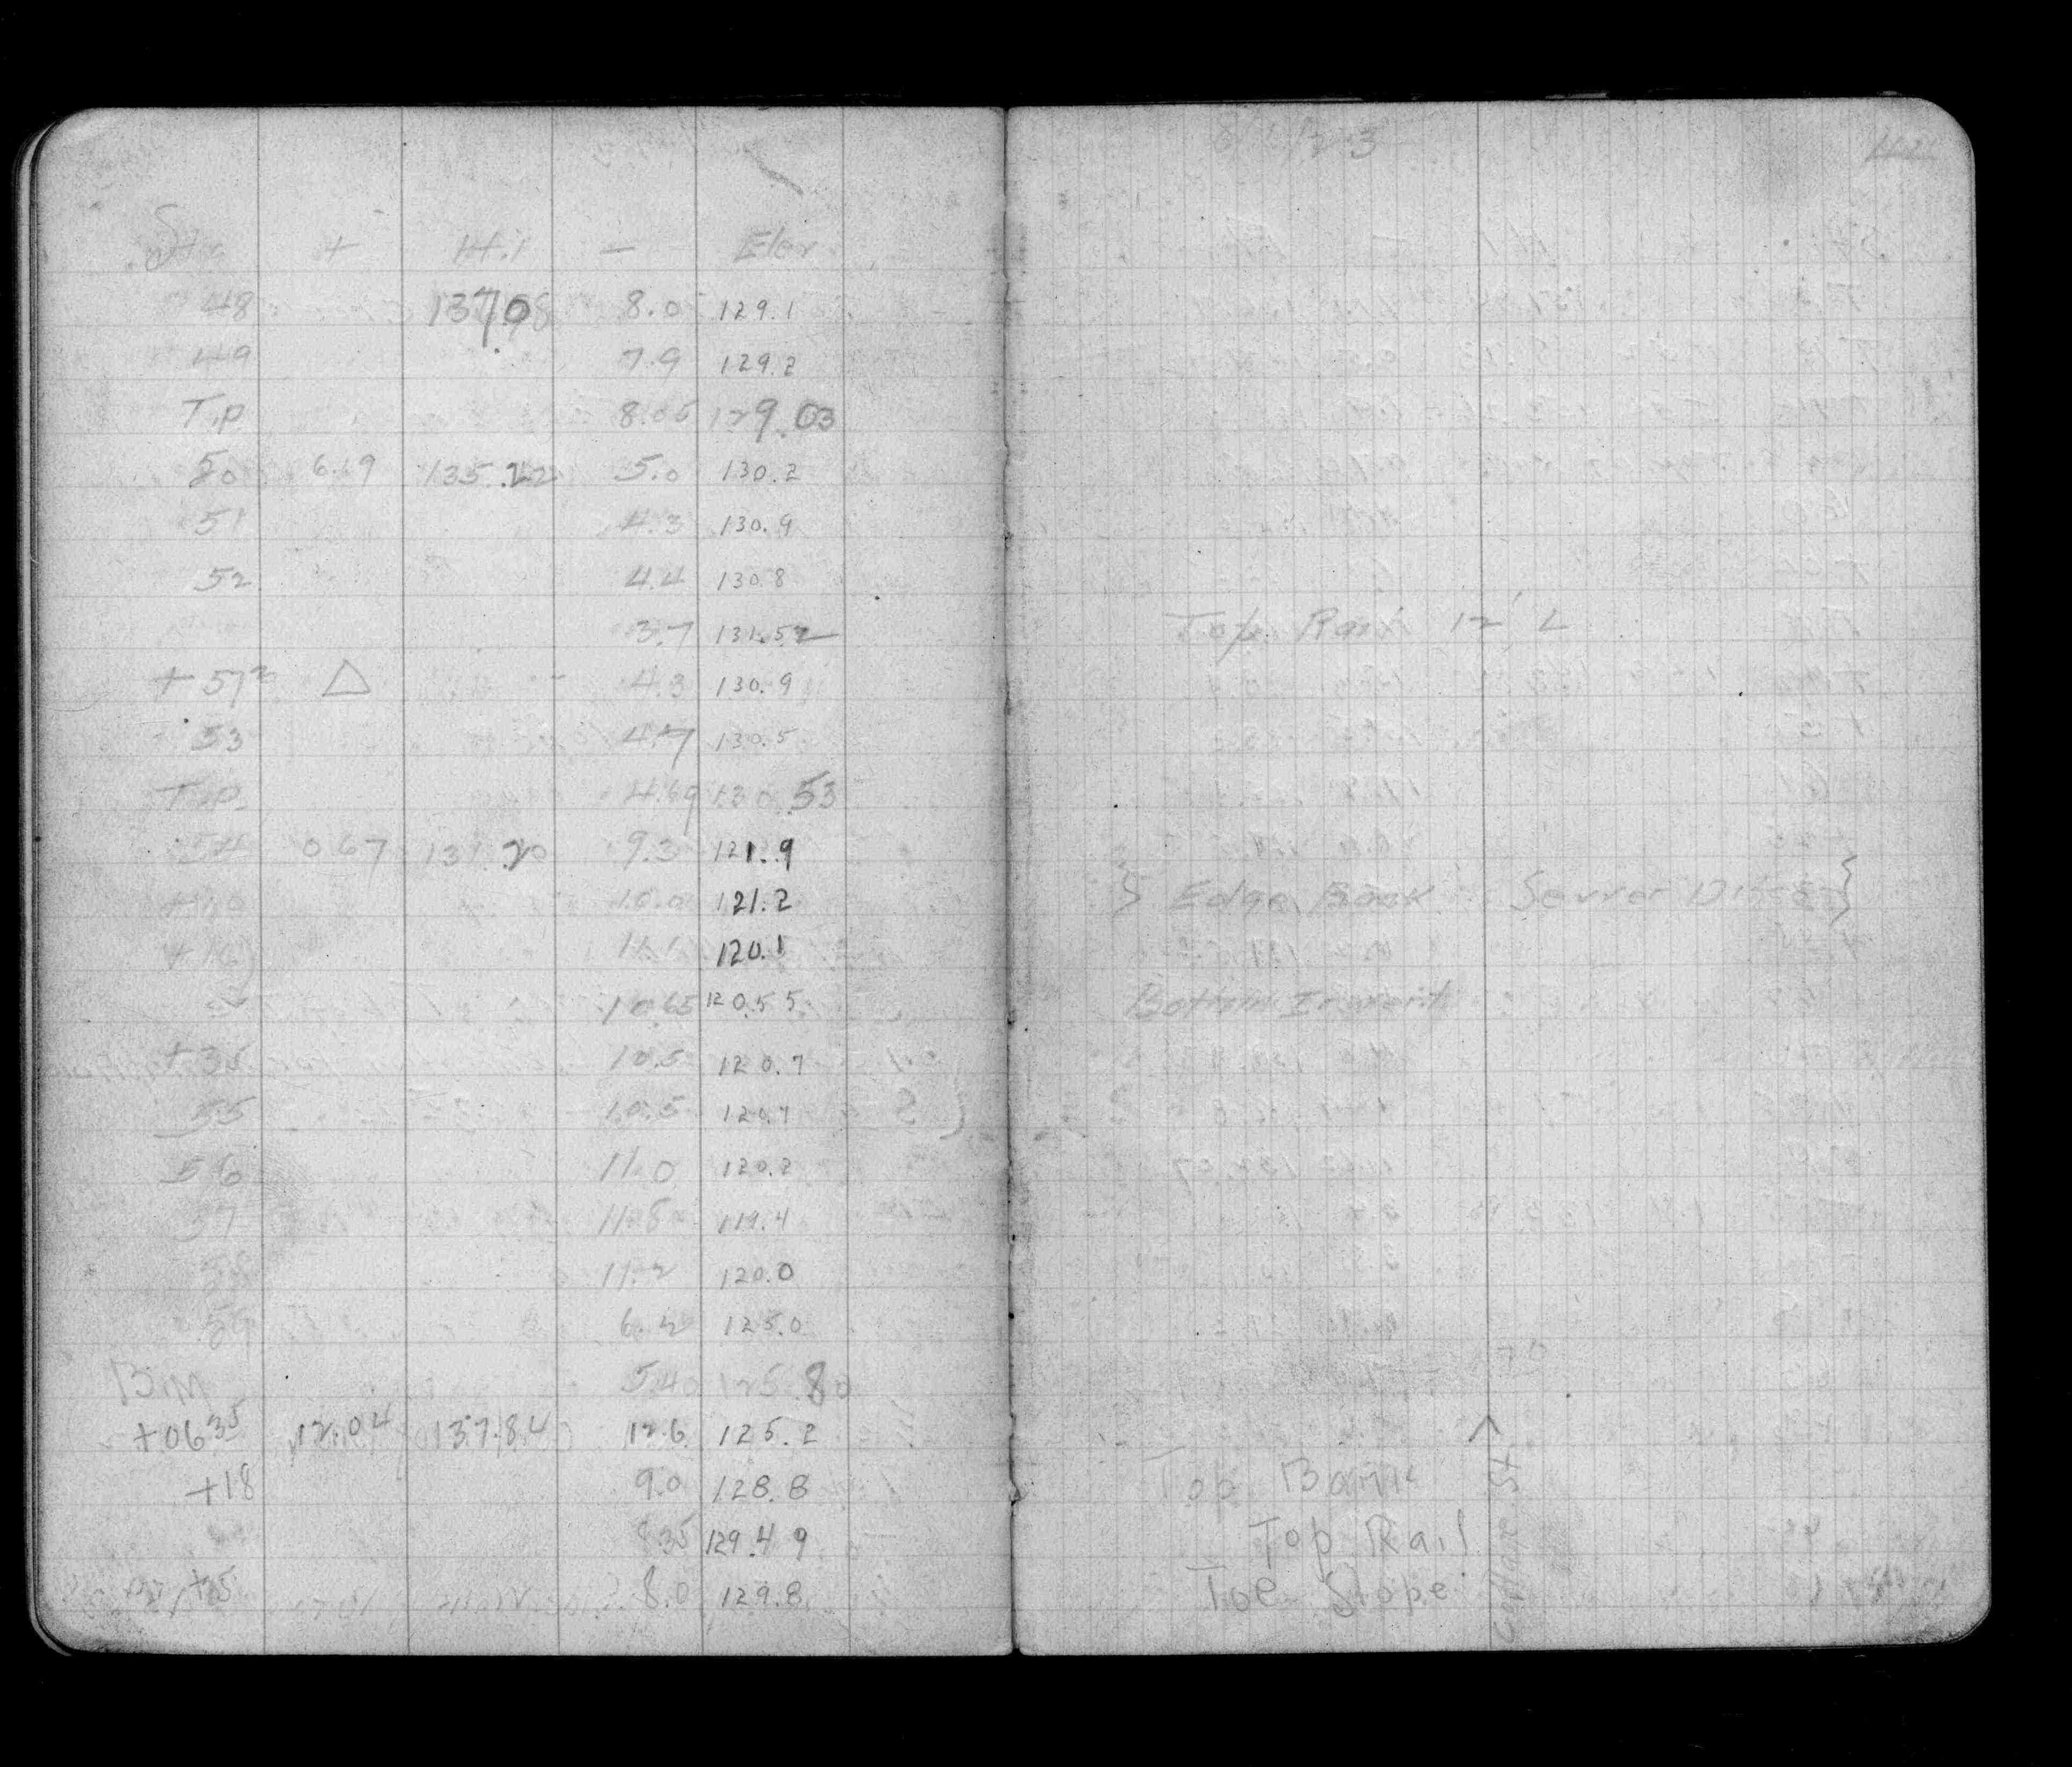 Sta + H.I - Elev
48 137.08 8.0 129.1
49 7.9 129.2
T.p 8.05 129.03
50 6.19 135.22 5.0 130.2
51 4.3 130.9
52 4.4 130.8
3.7 131.52 Top Rail 12' L
+57² △ 4.3 130.9
53 4.7 130.5
T.p. 4.69 130.53
54 0.67 131.20 9.3 121.9
10.0 121.2 } Edge Bank Sewer Ditch }
11.1 120.1
10.65 120.55 Bottom Invert
+35 10.5 120.7
55 10.5 120.7
56 11.0 120.2
57 11.8 119.4
58 11.2 120.0
59 6.2 125.0
BM 5.40 125.80
+06³⁵ 12.04 137.84 12.6 125.2
+18 9.0 128.8 Top Bank
8.35 129.49 Top Rail
+25 8.0 129.8 Toe Slope